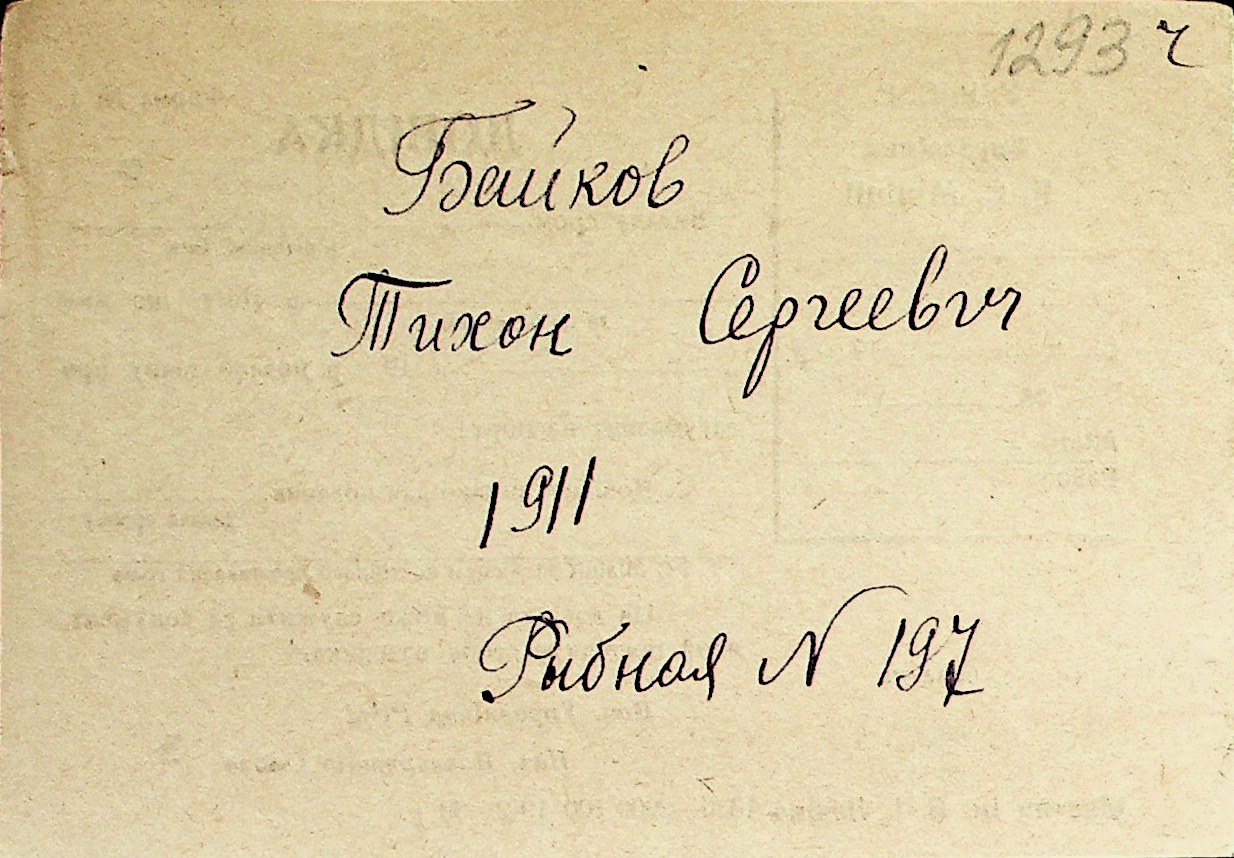 1293 ч
Байков
Тихон Сергеевич
1911
Рыбная N 197